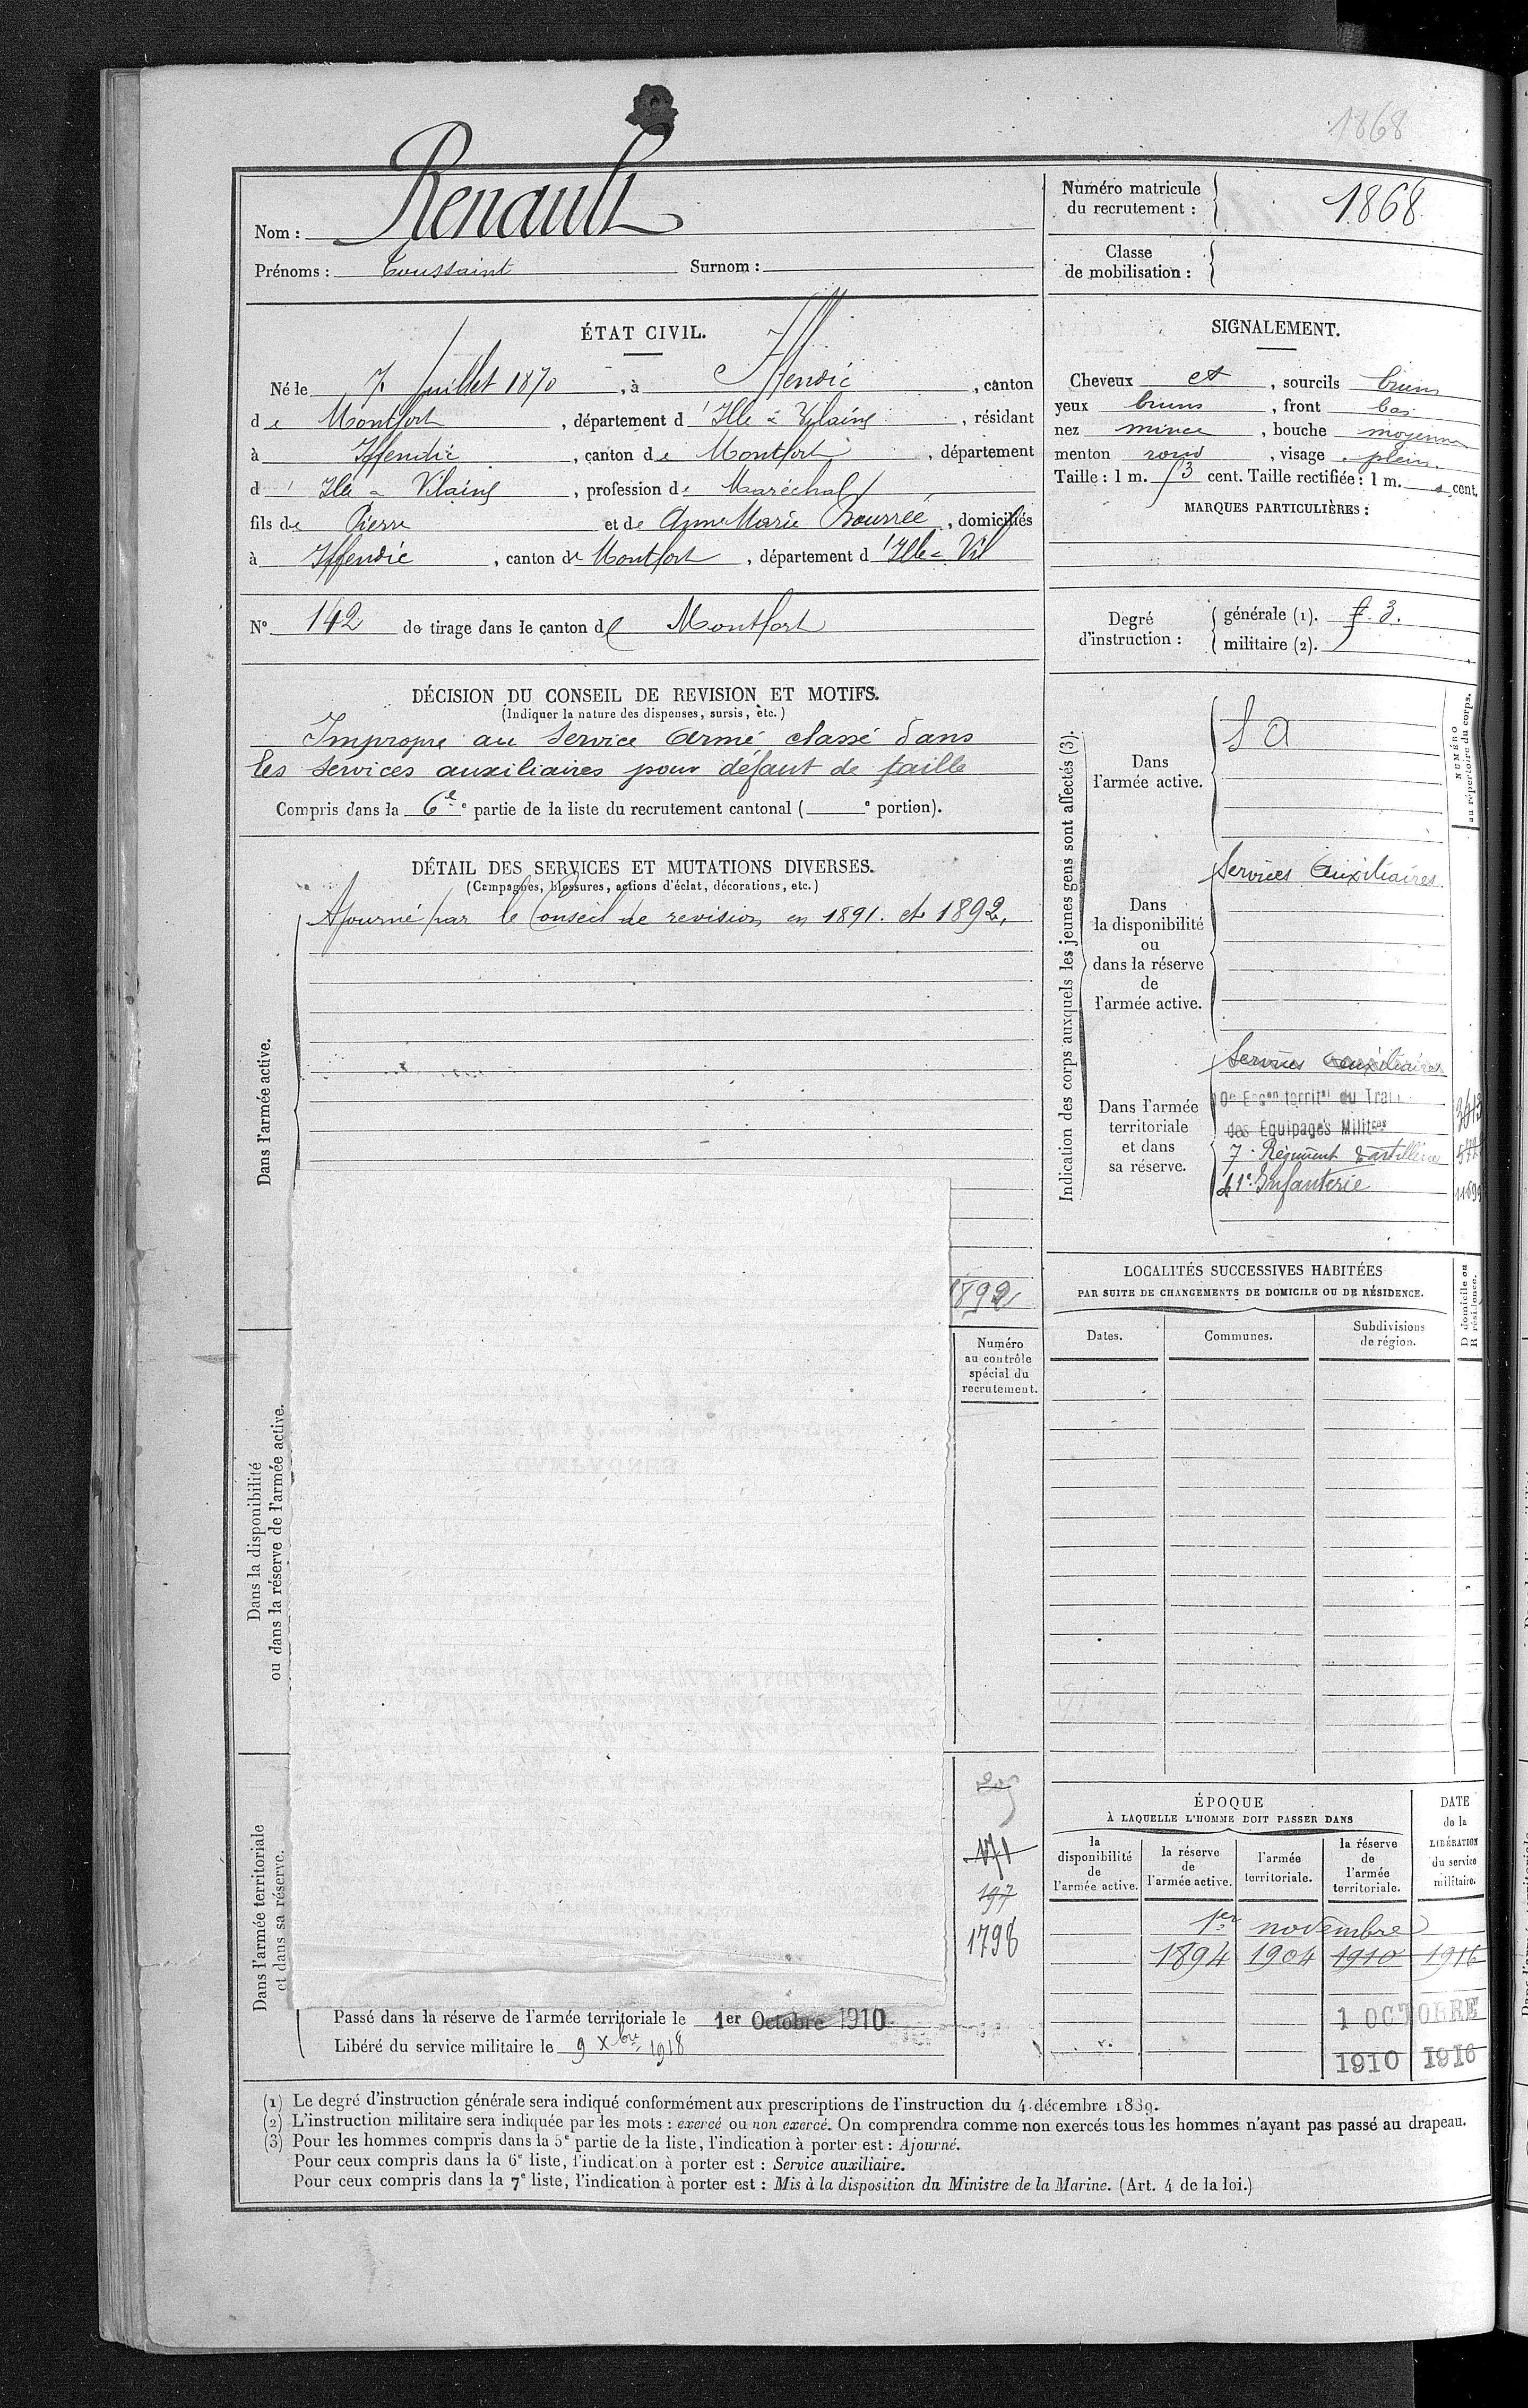 1868
Nom : Renault
Prénoms : Toussaint Surnom :
Numéro matricule du recrutement : 1868
Classe de mobilisation :
ÉTAT CIVIL.
Né le 7 Juillet 1870, à Iffendic, canton
de Montfort, département d'Ille & Vilaine, résidant
à Iffendic, canton de Montfort, département
d' Ille & Vilaine, profession de Maréchal
fils de Pierre et de Anne Marie Bourrée, domiciliés
à Iffendic, canton de Montfort, département d'Ille & Vil
N° 142 de tirage dans le canton de Montfort
SIGNALEMENT.
Cheveux et, sourcils bruns
yeux bruns, front bas
nez mince, bouche moyenne
menton rond, visage plein.
Taille : 1 m. 53 cent. Taille rectifiée : 1 m. cent.
MARQUES PARTICULIÈRES :
Degré d'instruction :
générale (1). 3.
militaire (2).
DÉCISION DU CONSEIL DE REVISION ET MOTIFS.
(Indiquer la nature des dispenses, sursis, etc.)
Impropre au Service Armé classé dans
les Services auxiliaires pour défaut de taille
Compris dans la 6e e partie de la liste du recrutement cantonal ( e portion).
DÉTAIL DES SERVICES ET MUTATIONS DIVERSES.
(Campagnes, blessures, actions d'éclat, décorations, etc.)
Dans l'armée active.
Ajourné par le Conseil de revision en 1891. et 1892.
1892
Dans la disponibilité
ou dans la réserve de l'armée active.
Numéro
au contrôle
spécial du
recrutement.
Dans l'armée territoriale
et dans sa réserve.
171
197
1798
Passé dans la réserve de l'armée territoriale le 1er Octobre 1910
Libéré du service militaire le 9 Xbre 1918
Indication des corps auxquels les jeunes gens sont affectés (3).
NUMÉRO
au répertoire du corps.
Dans
l'armée active.
S A
Dans
la disponibilité
ou
dans la réserve
de
l'armée active.
Services Auxiliaires.
Dans l'armée
territoriale
et dans
sa réserve.
Services auxiliaires
territal du Train
des Equipages Militres
7e Régiment d'artillerie
41e Infanterie
LOCALITÉS SUCCESSIVES HABITÉES
PAR SUITE DE CHANGEMENTS DE DOMICILE OU DE RÉSIDENCE.
Dates.
Communes.
Subdivisions
de région.
D domicile ou
R résidence.
ÉPOQUE
À LAQUELLE L'HOMME DOIT PASSER DANS
la
disponibilité
de
l'armée active.
la réserve
de
l'armée active.
l'armée
territoriale.
la réserve
de
l'armée
territoriale.
DATE
de la
LIBÉRATION
du service
militaire.
1er novembre
1894 1904 1910 1916
1 OCTOBRE
1910 1916
(1) Le degré d'instruction générale sera indiqué conformément aux prescriptions de l'instruction du 4 décembre 1889.
(2) L'instruction militaire sera indiquée par les mots : exercé ou non exercé. On comprendra comme non exercés tous les hommes n'ayant pas passé au drapeau.
(3) Pour les hommes compris dans la 5e partie de la liste, l'indication à porter est : Ajourné.
Pour ceux compris dans la 6e liste, l'indication à porter est : Service auxiliaire.
Pour ceux compris dans la 7e liste, l'indication à porter est : Mis à la disposition du Ministre de la Marine. (Art. 4 de la loi.)